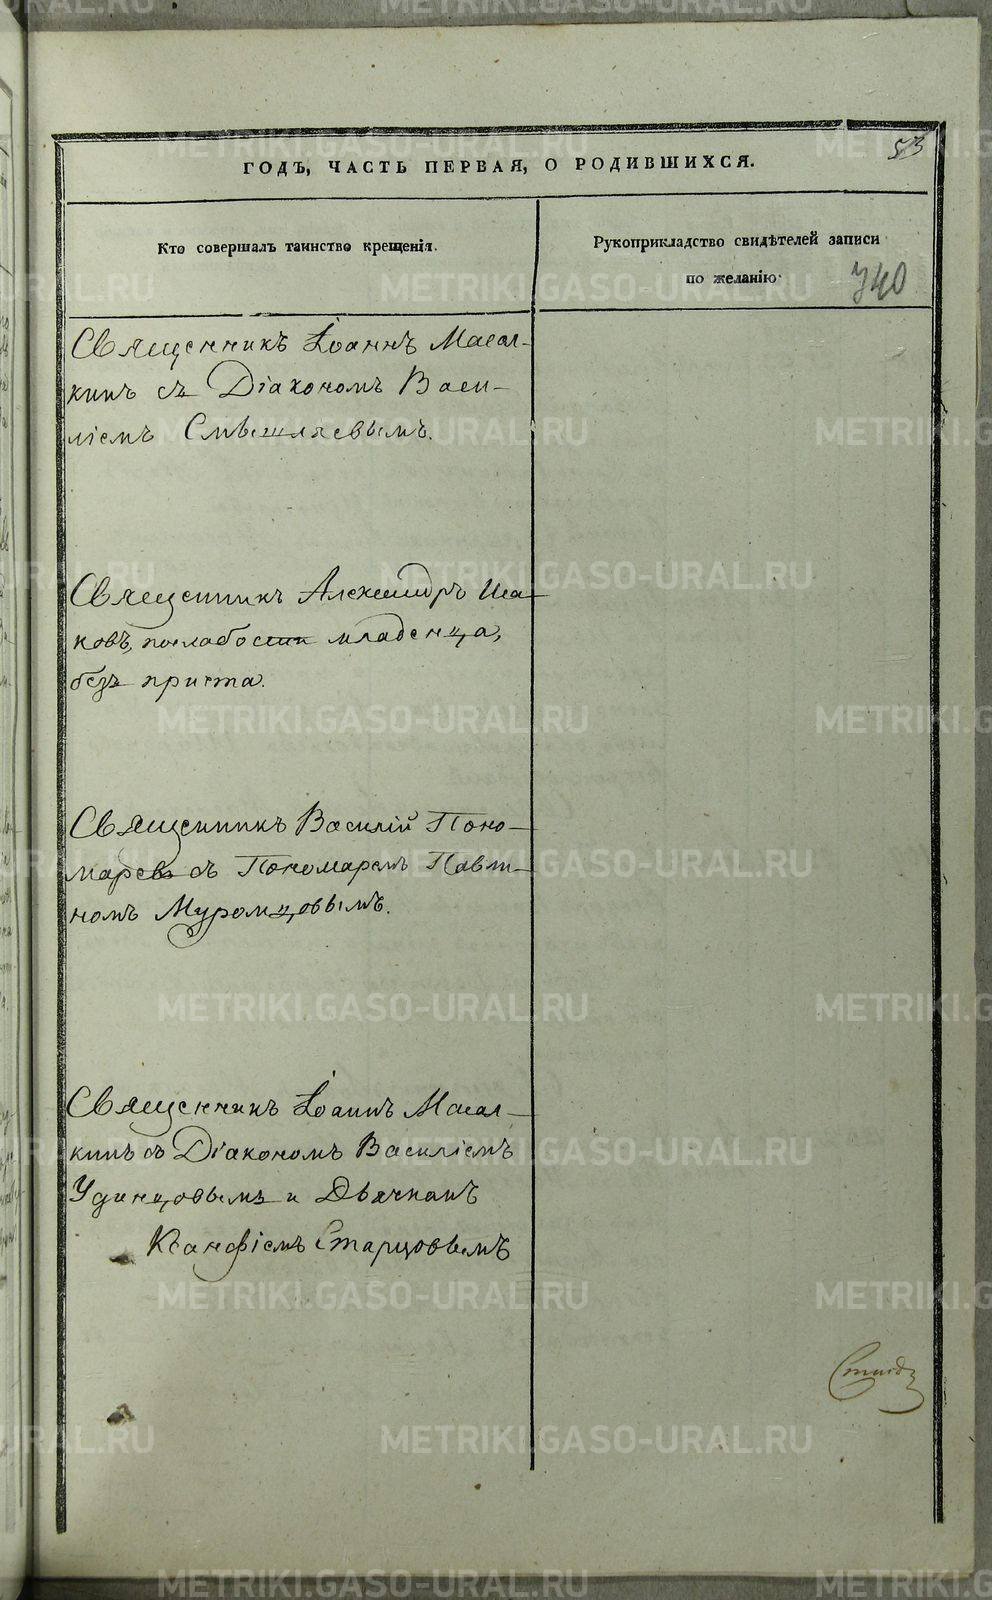 53
ГОДЪ, ЧАСТЬ ПЕРВАЯ, О РОДИВШИХСЯ.
Кто совершалъ таинство крещенія.
Рукоприкладство свидѣтелей записи
по желанію
740
Священникъ Іоаннъ Масал-
кинъ съ Діакономъ Васи-
ліемъ Смышляевымъ.
Священникъ Александръ Иса-
ковъ, по слабости младенца,
безъ причта.
Священникъ Василій Поно-
маревъ съ Пономаремъ Павли-
номъ Муромцовымъ.
Священникъ Іоаннъ Масал-
кинъ съ Діакономъ Василіемъ
Удинцовымъ и Дьячкомъ
Ксанфіемъ Старцовымъ
METRIKI.GASO-URAL.RU